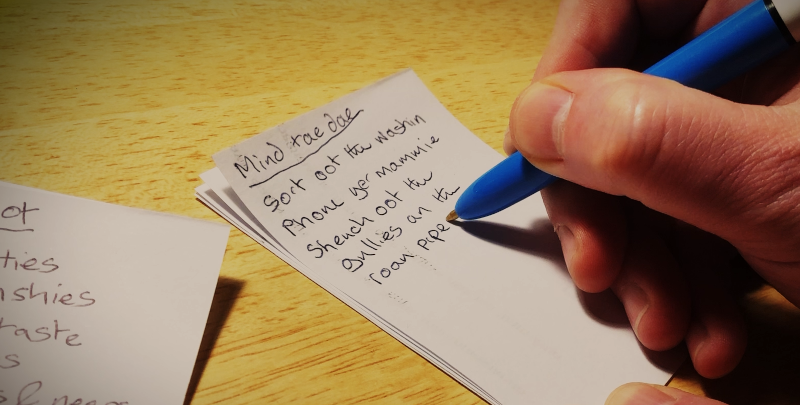 Mind tae dae
Sort oot the washin
Phone yer mammie
Sheuch oot the
gullies an the
roan pipe
ot
ties
nshies
taste
s